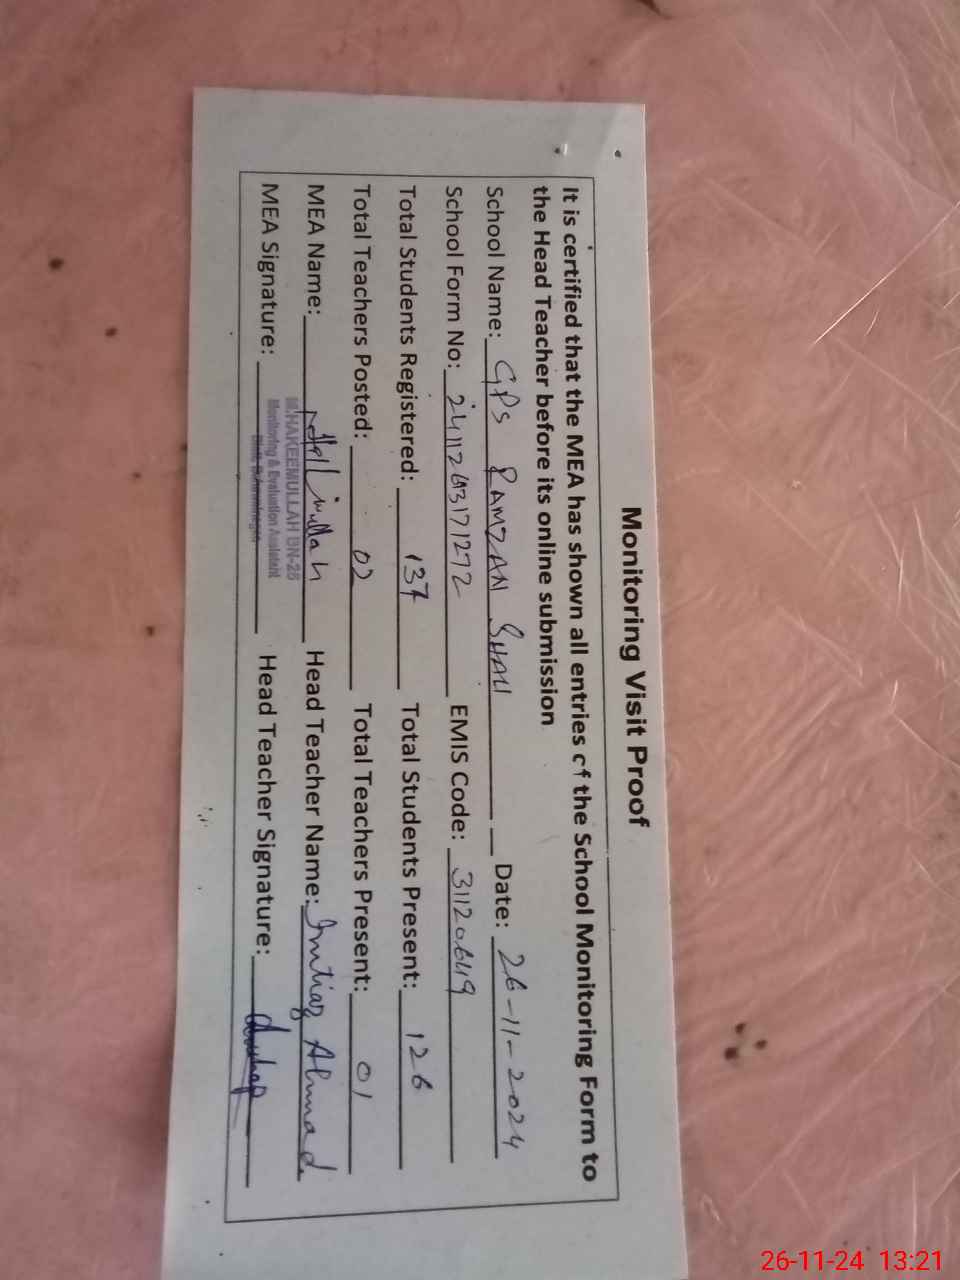 Monitoring Visit Proof
It is certified that the MEA has shown all entries of the School Monitoring Form to
the Head Teacher before its online submission
School Name: GPS RAMZAN SHAH Date: 26-11-2024
School Form No: EMIS Code: 31120649
Total Students Registered: 137 Total Students Present: 126
Total Teachers Posted: 02 Total Teachers Present: 01
MEA Name: Head Teacher Name: Imtiaz Ahmad
M.HAKEEMULLAH BN-25
Monitoring & Evaluation Assistant
MEA Signature: Head Teacher Signature:
26-11-24 13:21